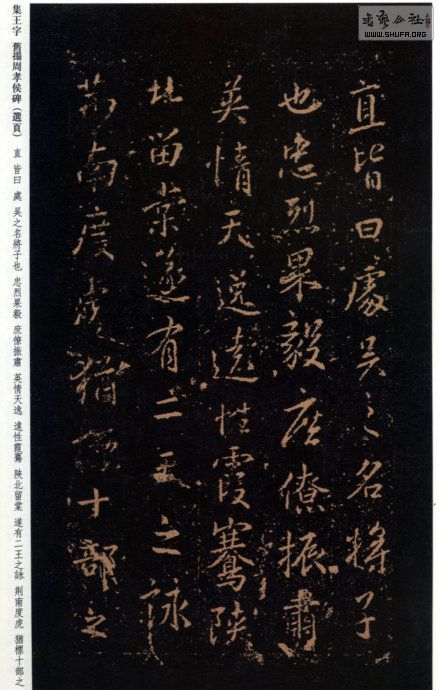 书艺公社
WWW.SHUFA.ORG
直皆曰處吳之名將子
也忠烈果毅庶僚振肅
英情天逸遠性霞騫陝
北留棠遂有二王之詠
荊南度虎猶標十部之
集王字 舊搨周孝侯碑(選頁) 直 皆曰 處 吳之名將子也 忠烈果毅 庶僚振肅 英情天逸 遠性霞騫 陝北留棠 遂有二王之詠 荊南度虎 猶標十部之